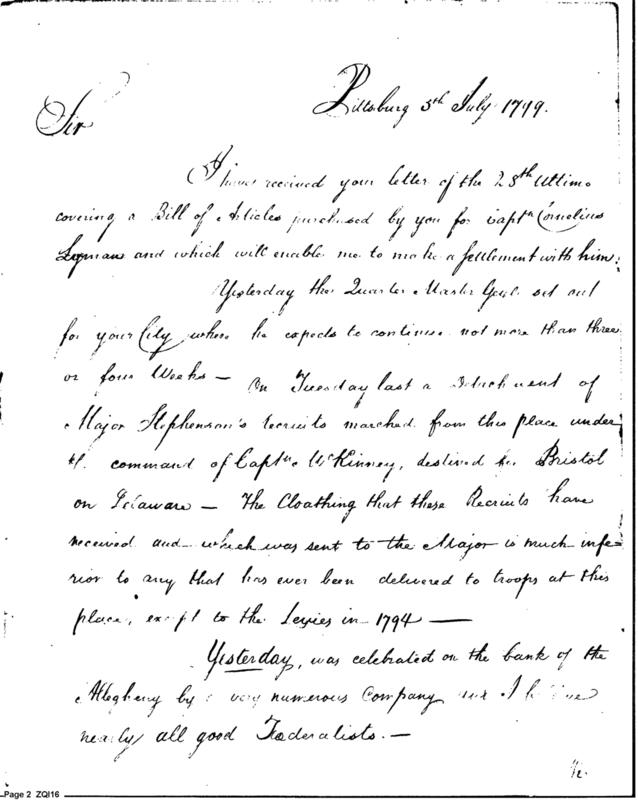 Pittsburg 5th July 1799.
Sir
I have received your letter of the 28th Ultimo
covering a Bill of Articles purchased by you for Captn Cornelius
Lyman and which will enable me to make a settlement with him.
Yesterday the Quarter Master Genl. set out
for your City where he expects to continue not more than three
or four Weeks — On Tuesday last a Detachment of
Major Stephenson's recruits marched from this place under
command of Captn McKinney, destined for Bristol
on Delaware — The Cloathing that these Recruits have
received and which was sent to the Major is much infe-
rior to any that has ever been delivered to troops at this
place, except to the Levies in 1794 —
Yesterday, was celebrated on the bank of the
Allegheny by a very numerous Company and I believe
nearly all good Federalists. —
Page 2 ZQI16